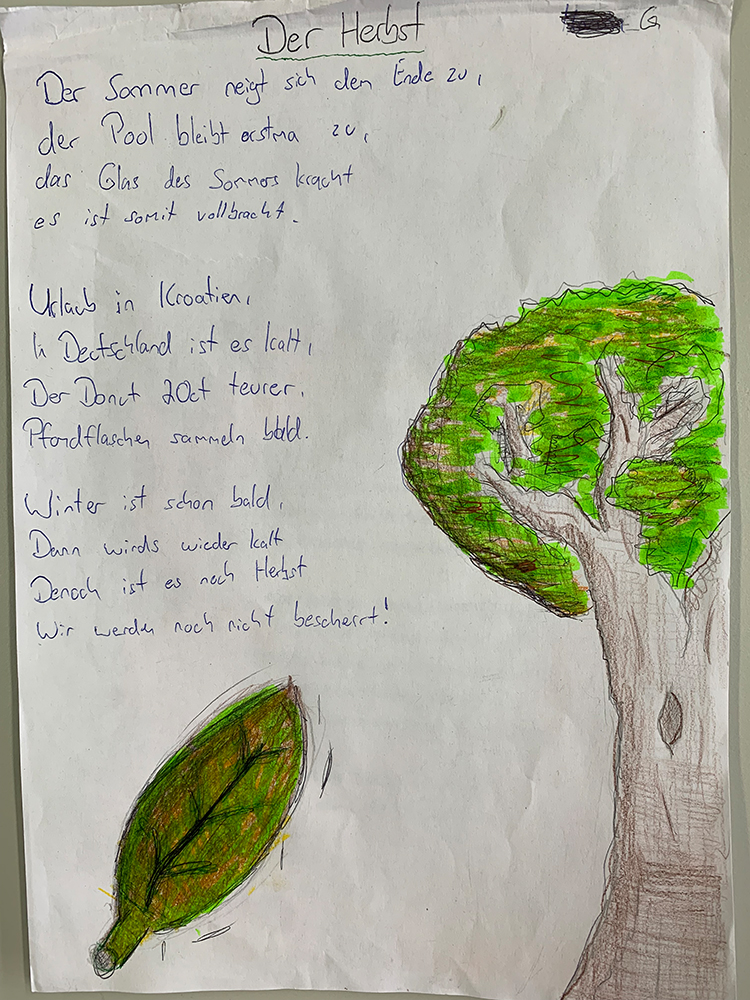 Der Herbst
G
Der Sommer neigt sich dem Ende zu,
der Pool bleibt erstma zu,
das Glas des Sommers kracht
es ist somit vollbracht.
Urlaub in Kroatien,
In Deutschland ist es kalt,
Der Donut 20ct teurer,
Pfandflaschen sammeln bald.
Winter ist schon bald,
Dann wirds wieder kalt
Denoch ist es noch Herbst
Wir werden noch nicht bescherrt!